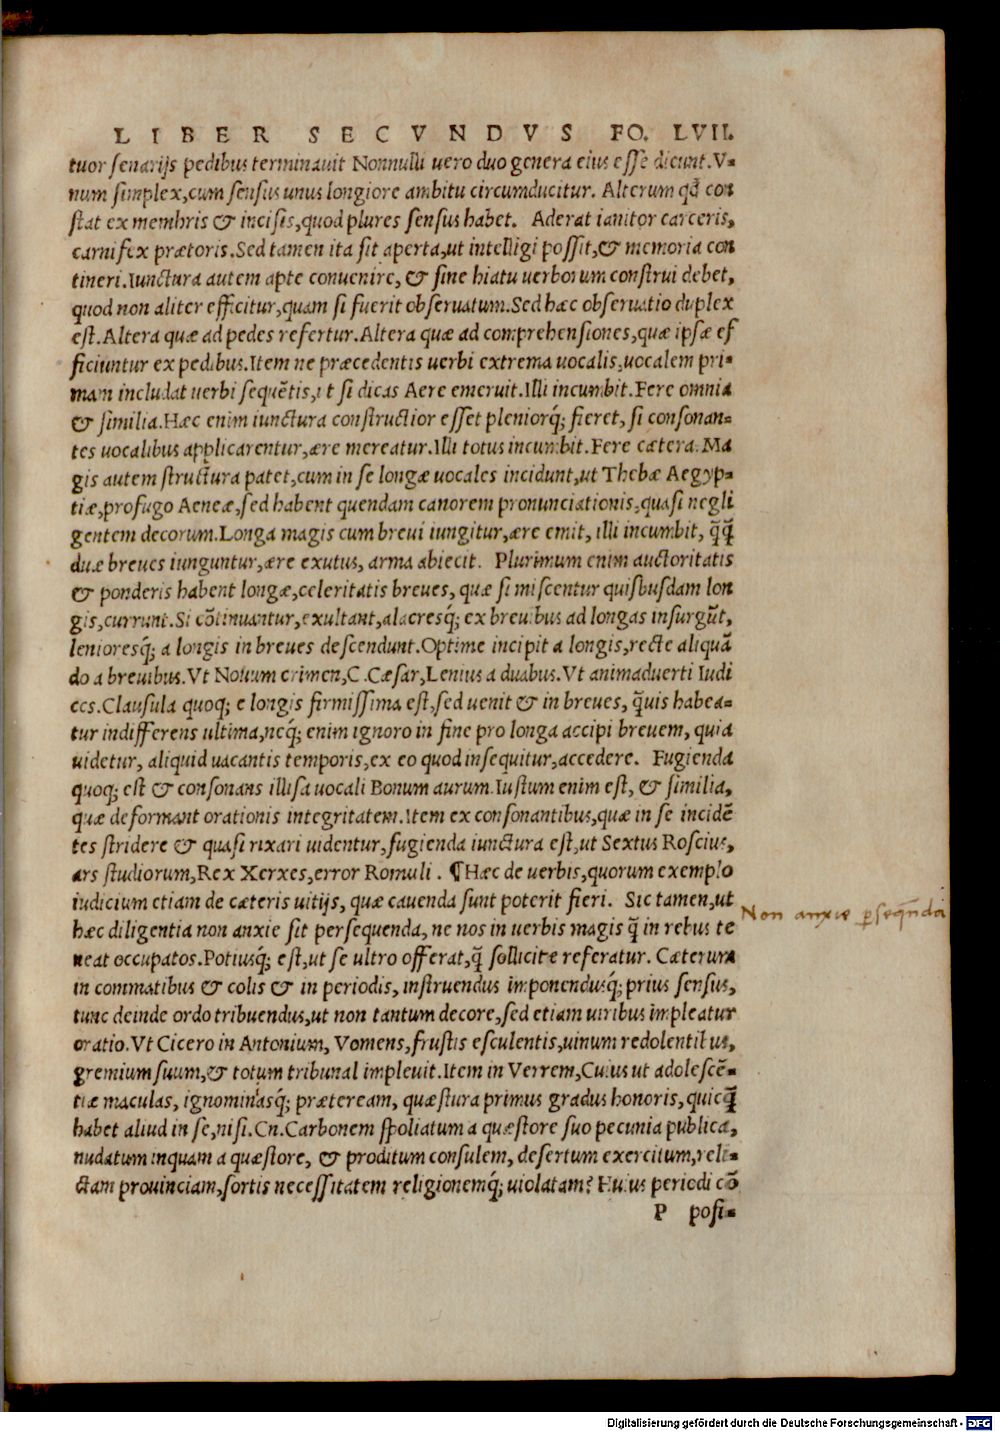 LIBER SECVNDVS FO. LVII.
tuor senarijs pedibus terminauit Nonnulli uero duo genera eius esse dicunt.V-
num simplex,cum sensus unus longiore ambitu circumducitur. Alterum qď con
stat ex membris & incisis,quod plures sensus habet. Aderat ianitor carceris,
carnifex prætoris.Sed tamen ita sit aperta,ut intelligi possit,& memoria con
tineri.Iunctura autem apte conuenire, & sine hiatu uerborum construi debet,
quod non aliter efficitur,quam si fuerit obseruatum.Sed hæc obseruatio duplex
est.Altera quæ ad pedes refertur.Altera quæ ad comprehensiones,quæ ipsæ ef
ficiuntur ex pedibus.Item ne præcedentis uerbi extrema uocalis,uocalem pri-
mam includat uerbi sequētis,ut si dicas Aere emeruit.Illi incumbit.Fere omnia
& similia.Hæc enim iunctura constructior esset pleniorq́; fieret, si consonan-
tes uocalibus applicarentur,ære mereatur.Illi totus incumbit.Fere cætera.Ma
gis autem structura patet,cum in se longæ uocales incidunt,ut Thebæ Aegyp-
tiæ,profugo Aeneæ,sed habent quendam canorem pronunciationis,quasi negli
gentem decorum.Longa magis cum breui iungitur,ære emit, illi incumbit, q̄q̄
duæ breues iunguntur,ære exutus, arma abiecit. Plurimum enim auctoritatis
& ponderis habent longæ,celeritatis breues, quæ si miscentur quisbusdam lon
gis,currunt.Si cōtinuantur,exultant,alacresq́; ex breuibus ad longas insurgūt,
lenioresq́; a longis in breues descendunt.Optime incipit a longis,recte aliquā
do a breuibus.Vt Nouum crimen,C.Cæsar,Lenius a duabus.Vt animaduerti Iudi
ces.Clausula quoq; e longis firmissima est,sed uenit & in breues, q̄uis habea-
tur indifferens ultima,neq́; enim ignoro in fine pro longa accipi breuem, quia
uidetur, aliquid uacantis temporis,ex eo quod insequitur,accedere. Fugienda
quoq; est & consonans illisa uocali Bonum aurum.Iustum enim est, & similia,
quæ deformant orationis integritatem.Item ex consonantibus,quæ in se incidē
tes stridere & quasi rixari uidentur,fugienda iunctura est,ut Sextus Roscius,
ars studiorum,Rex Xerxes,error Romuli . ¶Hæc de uerbis,quorum exemplo
iudicium etiam de cæteris uitijs, quæ cauenda sunt poterit fieri. Sic tamen,ut
hæc diligentia non anxie sit persequenda, ne nos in uerbis magis q̄ in rebus te
neat occupatos.Potiusq́; est,ut se ultro offerat,q̄ sollicite referatur. Cæterum
in commatibus & colis & in periodis, instruendus imponendusq́; prius sensus,
tunc deinde ordo tribuendus,ut non tantum decore,sed etiam uiribus impleatur
oratio.Vt Cicero in Antonium, Vomens,frustis esculentis,uinum redolentibus,
gremium suum,& totum tribunal impleuit.Item in Verrem,Cuius ut adolescē-
tiæ maculas, ignominiasq́; præteream, quæstura primus gradus honoris, quicq̄
habet aliud in se,nisi.Cn.Carbonem spoliatum a quæstore suo pecunia publica,
nudatum inquam a quæstore, & proditum consulem, desertum exercitum,reli-
ctam prouinciam,sortis necessitatem religionemq́; uiolatam? Huius periodi cō
P posi-
Non anxie
Digitalisierung gefördert durch die Deutsche Forschungsgemeinschaft - DFG